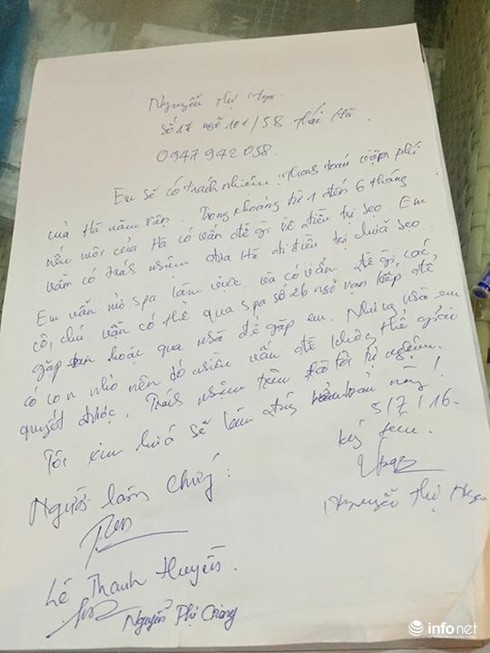 Nguyễn Thị Nga
Số 17 ngõ 101/58 Thái Hà
0947942058
Em sẽ có trách nhiệm thanh toán viện phí
của Hà nằm viện. Trong khoảng từ 1 đến 6 tháng
nếu môi của Hà có vấn đề gì về điều trị sẹo Em
vẫn có trách nhiệm đưa Hà đi điều trị sẹo
Em vẫn mở spa làm việc và có vấn đề gì, các
cô, chú vẫn có thể qua spa số 26 ngõ vạn kiếp để
gặp hoặc qua nhà để gặp em. Nhưng nhà em
có con nhỏ nên có nhiều vấn đề không thể giải
quyết được. Trách nhiệm
Tôi xin hứa sẽ làm đúng này!
5/7/16.
Người làm chứng:
Ký tên
Nguyễn Thị Nga
Lê Thanh Huyền
Nguyễn Phi
infonet